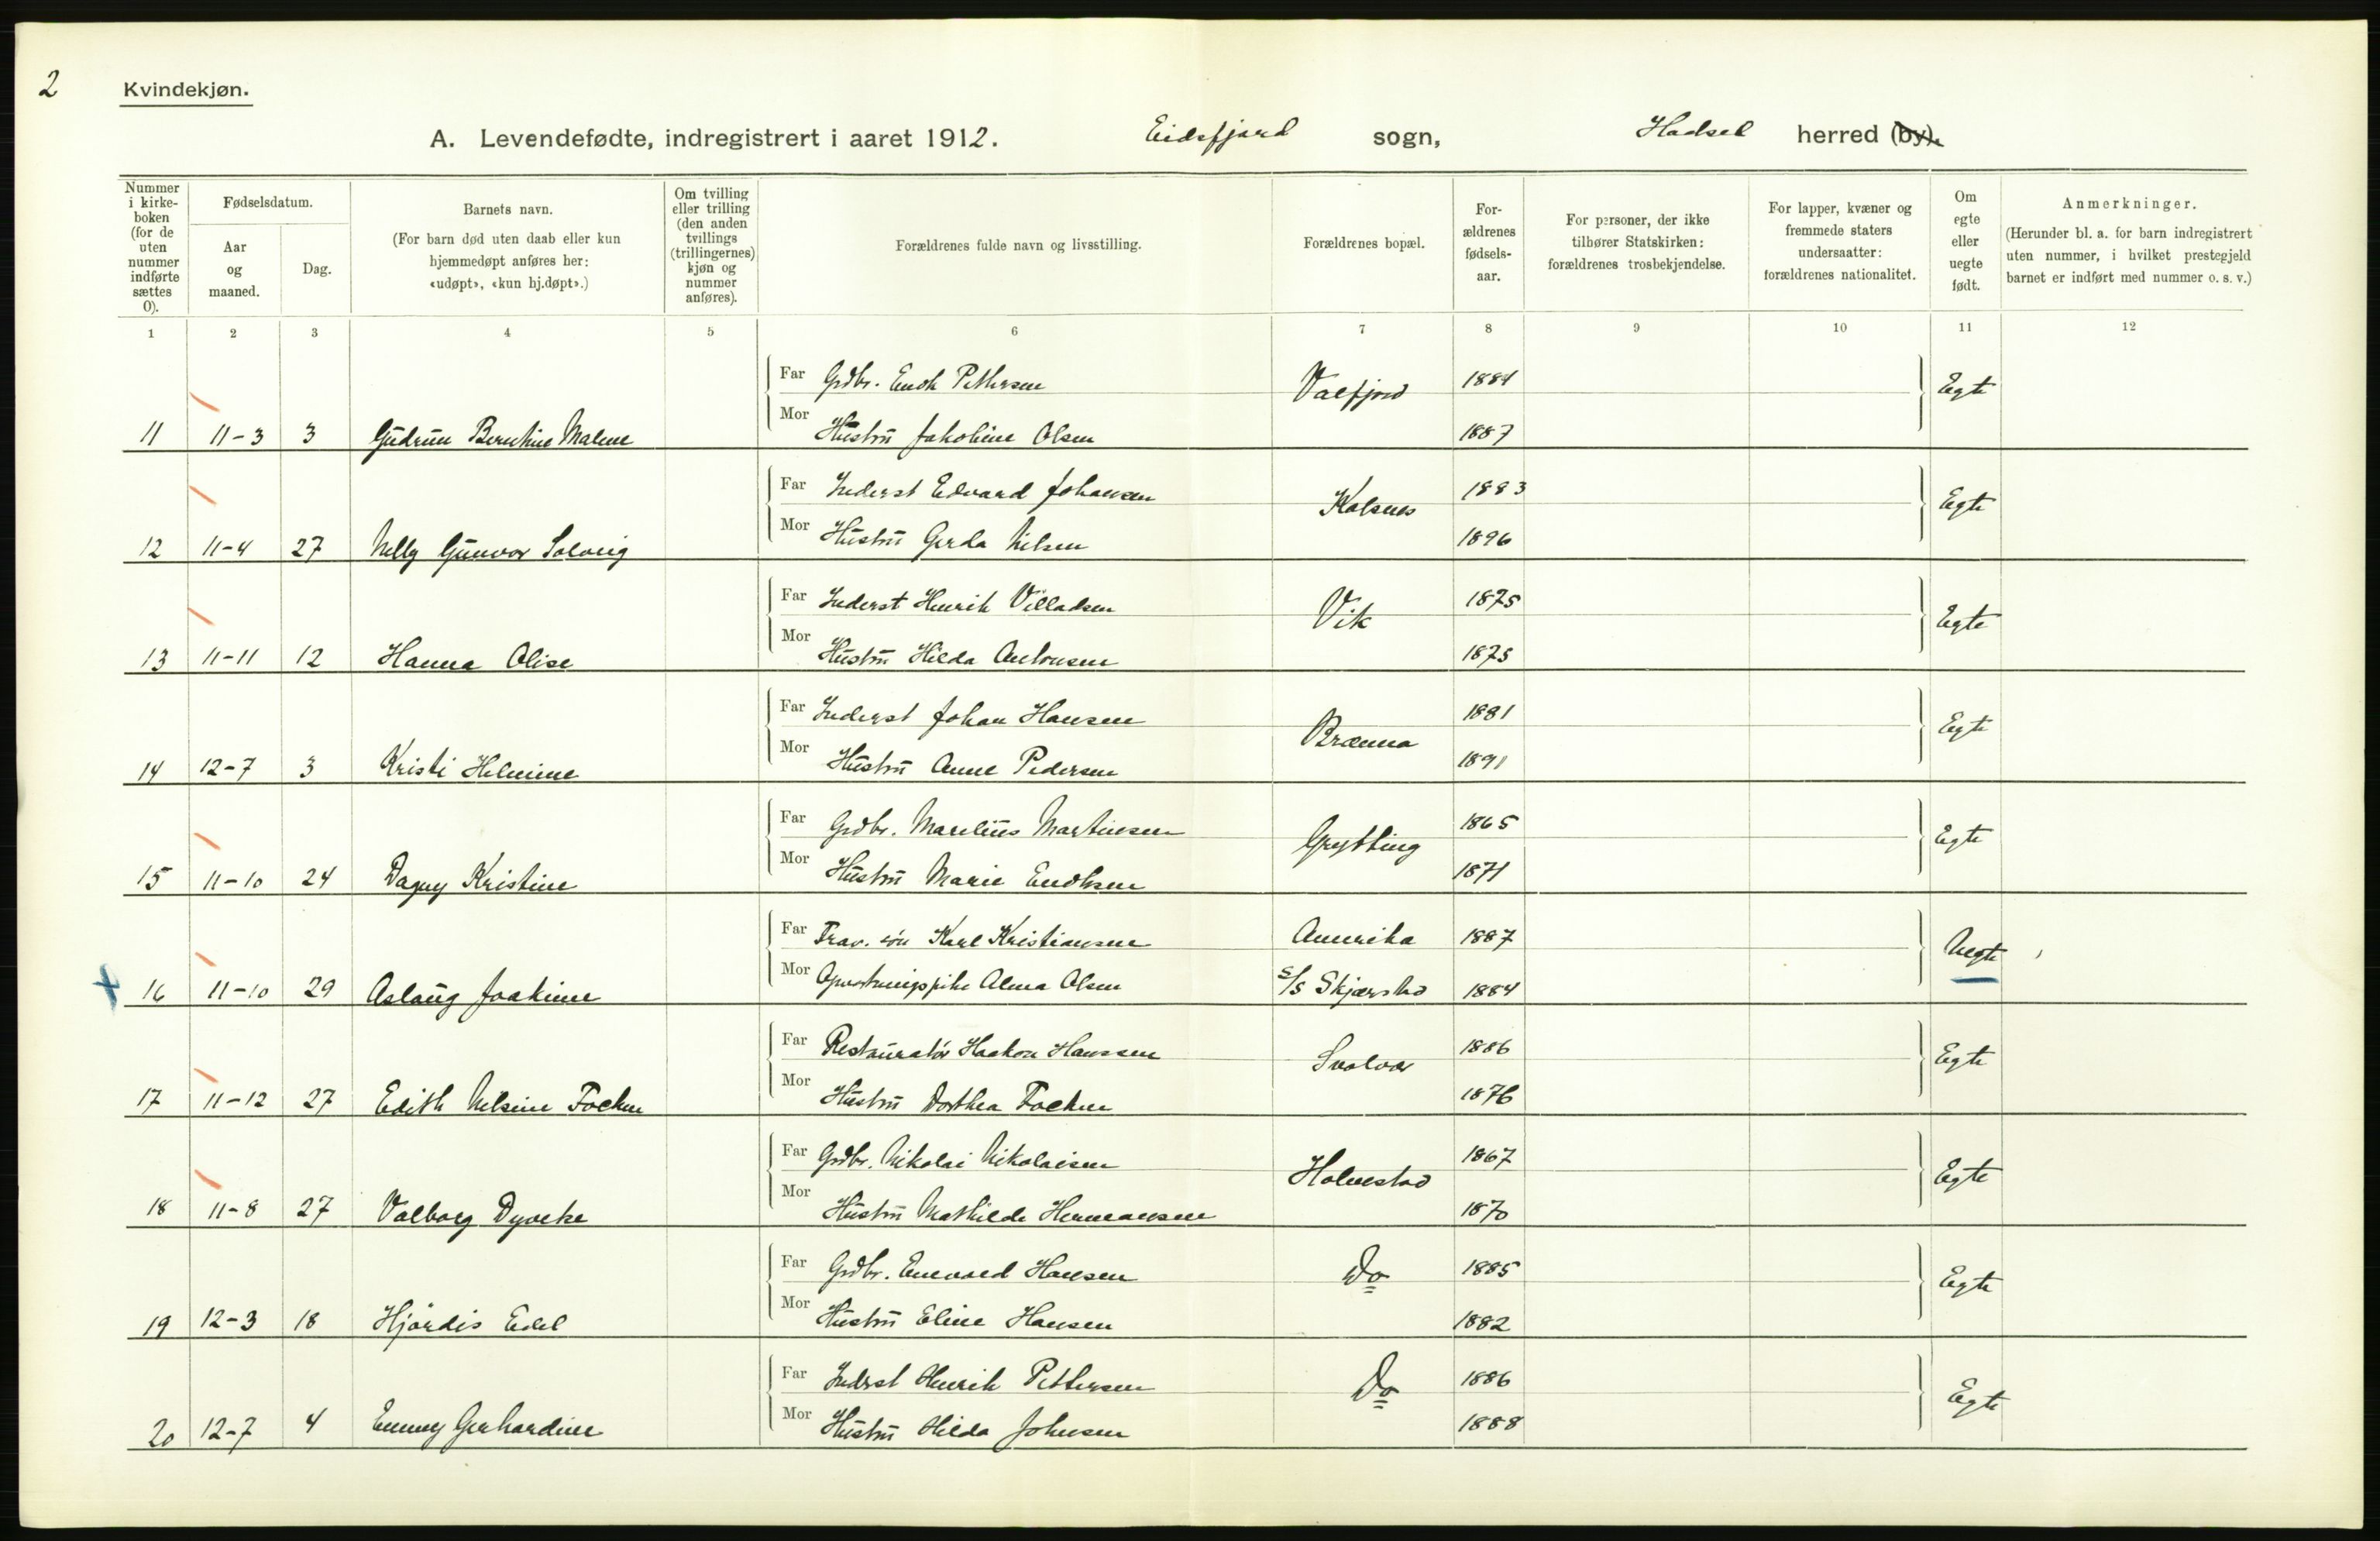 2
Kvindekjøn.
A. Levendefødte, indregistrert i aaret 1912. Eidsfjord sogn, Hadsel herred (by).
Nummer i kirke-boken (for de uten nummer indførte sættes 0).
Fødselsdatum.
Aar og maaned.
Dag.
Barnets navn.
(For barn død uten daab eller kun hjemmedøpt anføres her: «udøpt», «kun hj.døpt».)
Om tvilling eller trilling (den anden tvillings (trillingernes) kjøn og nummer anføres).
Forældrenes fulde navn og livsstilling.
Forældrenes bopæl.
For-ældrenes fødsels-aar.
For personer, der ikke tilhører Statskirken: forældrenes trosbekjendelse.
For lapper, kvæner og fremmede staters undersaatter: forældrenes nationalitet.
Om egte eller uegte født.
Anmerkninger.
(Herunder bl. a. for barn indregistrert uten nummer, i hvilket prestegjeld barnet er indført med nummer o. s. v.)
1 2 3 4 5 6 7 8 9 10 11 12
Far Grdbr. Enok Pettersen Valfjord 1884 Egte
11 11-3 3 Gudrun Berntine Malene Mor Hustru Jakobine Olsen 1887
Far Inderst Edvard Johansen Kalsnes 1883 Egte
12 11-4 27 Nelly Gunvor Solveig Mor Hustru Gerda Nilsen 1896
Far Inderst Henrik Villadsen Vik 1875 Egte
13 11-11 12 Hanna Olise Mor Hustru Hilda Antonsen 1875
Far Inderst Johan Hansen Brænna 1881 Egte
14 12-7 3 Kristi Helmine Mor Hustru Anne Pedersen 1891
Far Grdbr. Marelius Martinsen Grytting 1865 Egte
15 11-10 24 Dagny Kristine Mor Hustru Marie Enoksen 1871
Far Trav. søn Karl Kristiansen Amerika 1887 Uegte
16 11-10 29 Aslaug Joakime Mor Opvartningspike Alma Olsen S/S Skjærstad 1884
Far Restauratør Haakon Hanssen Svolvær 1886 Egte
17 11-12 27 Edith Nilsine Focken Mor Hustru Dorthea Focken 1876
Far Grdbr. Nikolai Nikolaisen Holmstad 1867 Egte
18 11-8 27 Valborg Dyveke Mor Hustru Mathilde Hermansen 1870
Far Grdbr. Enevold Hansen Do 1885 Egte
19 12-3 18 Hjørdis Edel Mor Hustru Eline Hansen 1882
Far Inderst Henrik Pettersen Do 1886 Egte
20 12-7 4 Emmy Gerhardine Mor Hustru Hilda Johnsen 1888